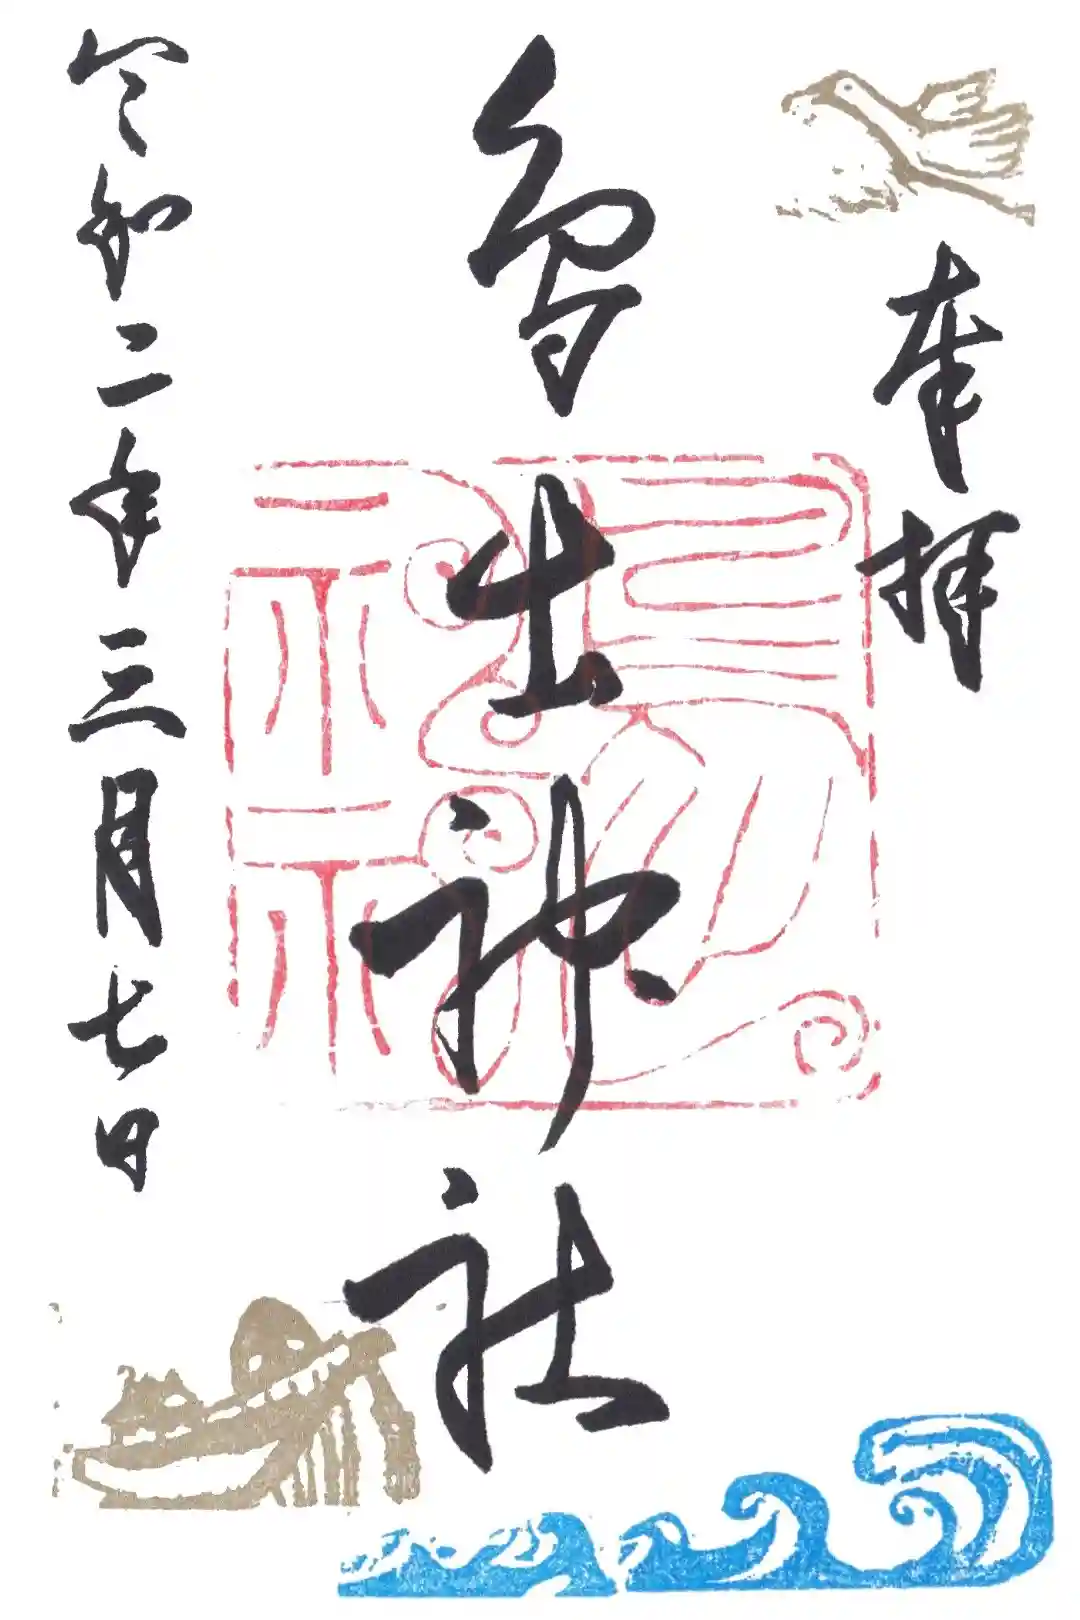 奉拝
鳥出神社
令和二年三月七日